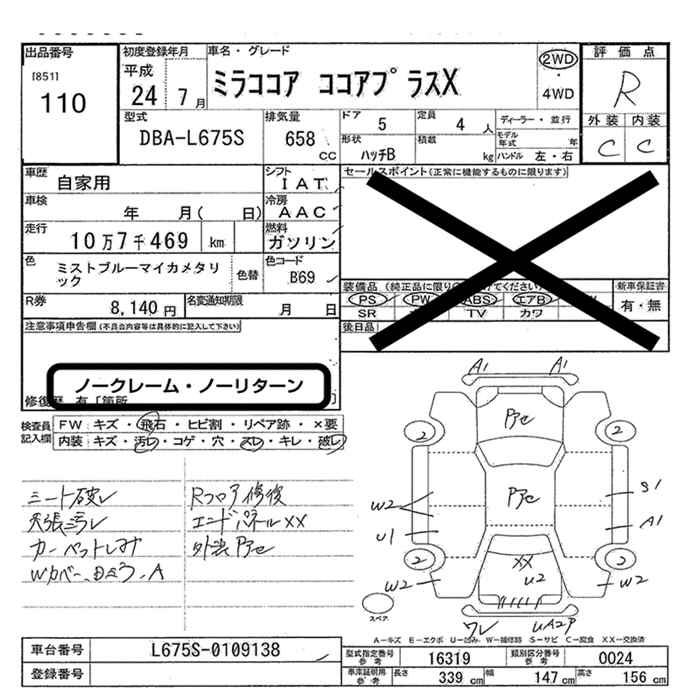 出品番号
[851]
110
初度登録年月
平成
24 7 月
車名・グレード
ミラココア ココアプラスX
2WD
・
4WD
評価点
R
外装 内装
C C
型式
DBA-L675S
排気量
658
CC
ドア 5
定員 4 人
ディーラー・並行
モデル年式 年
形状 ハッチB
積載 kg
ハンドル 左・右
車歴
自家用
シフト
IAT
セールスポイント(正常に機能するものに限ります)
車検
年 月( 日)
冷房
AAC
走行
10万7千469 km
燃料
ガソリン
色
ミストブルーマイカメタリック
色替
色コード
B69
装備品 (純正品に限り
けてください)
新車保証書
PS PW ABS エアB
有・無
SR TV カワ
R券
8,140 円
名変通知期限
月 日
後日品
注意事項申告欄(不具合内容等は具体的に記入して下さい)
ノークレーム・ノーリターン
修復歴 有 [箇所 ]
検査員記入欄
FW キズ・飛石・ヒビ割・リペア跡・×要
内装 キズ・汚レ・コゲ・穴・スレ・キレ・破レ
シート破レ
天張汚レ
カーペットしみ
Wカバー、日よう、A
Rフロア修復
エンドパネルXX
外装アセ
A1 A1
アセ
2 2
アセ
W2
U1
S1
A1
2 2
W2
XX
U2
W2
ワレ
UA2P
スペア
A－キズ E－エクボ U－凹み W－補修跡 S－サビ C－腐食 XX－交換済
車台番号
L675S-0109138
型式指定番号
参考
16319
類別区分番号
参考
0024
登録番号
車庫証明用
参考
長さ 339 cm
幅 147 cm
高さ 156 cm